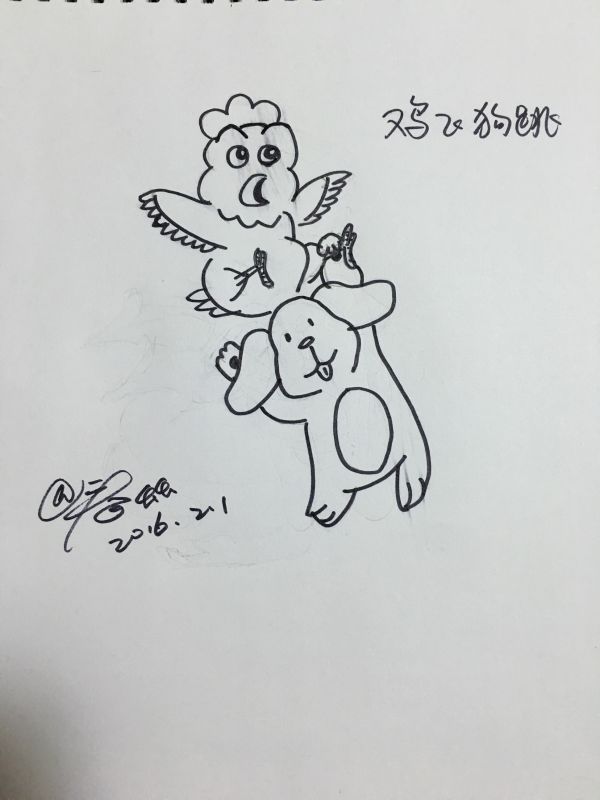 鸡飞狗跳
2016.2.1